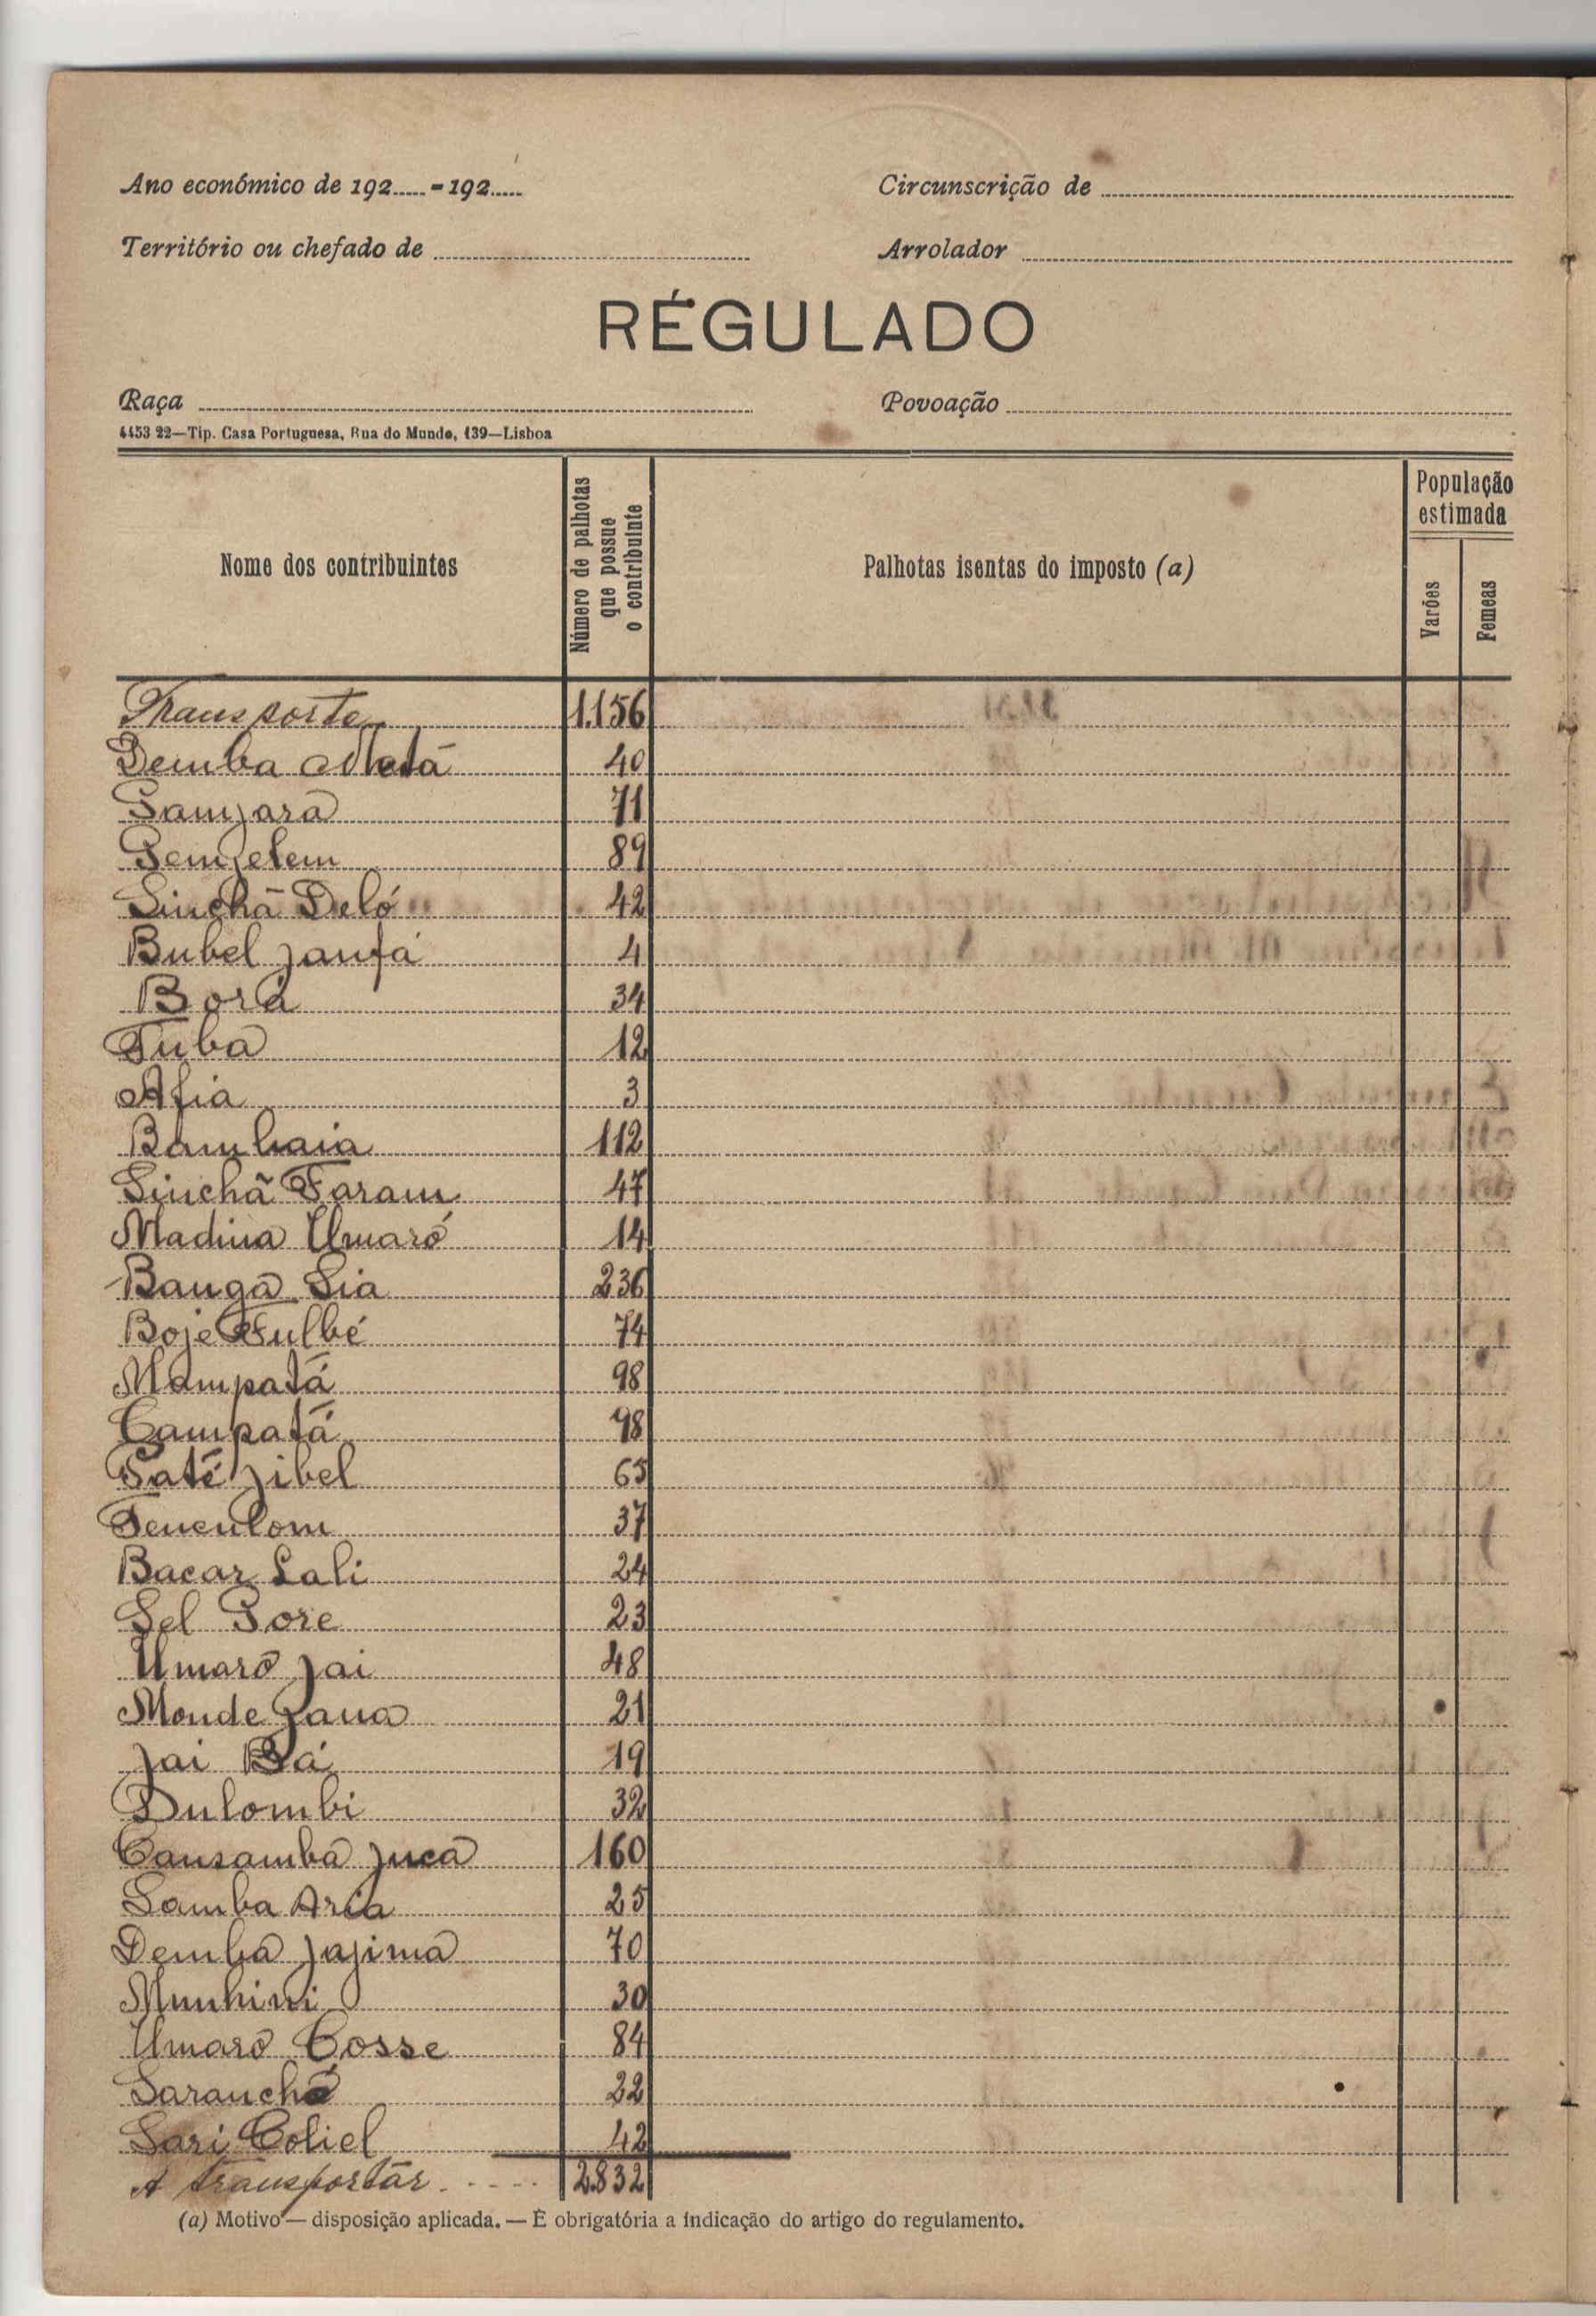 Ano económico de 192..... - 192.....
Circunscrição de
Território ou chefado de
Arrolador
RÉGULADO
Raça
Povoação
4453 22—Tip. Casa Portuguesa, Rua do Mundo, 139—Lisboa
Nome dos contribuintes
Número de palhotas que possue o contribuinte
Palhotas isentas do imposto (a)
População estimada
Varões
Femeas
Transporte 1.156
Demba Metá 40
Samjara 71
Semjelem 89
Sinchã Deló 42
Bubel Janfá 4
Borá 34
Tuba 12
Afia 3
Bambaia 112
Sinchã Faram 47
Madina Umaró 14
Banga Sia 236
Boje Fulbé 74
Mampatá 98
Campatá 98
Saté Jibel 65
Tenculom 37
Bacar Lali 24
Sel Pore 23
Umaro Jai 48
Monde Jana 21
Jai Bá 19
Dulombi 32
Cansamba Juca 160
Samba Aria 25
Demba Jajima 70
Munhini 30
Umaro Cosse 84
Saranchá 22
Sari Coliel 42
A transportar . - - - . 2.832
(a) Motivo — disposição aplicada. — É obrigatória a indicação do artigo do regulamento.